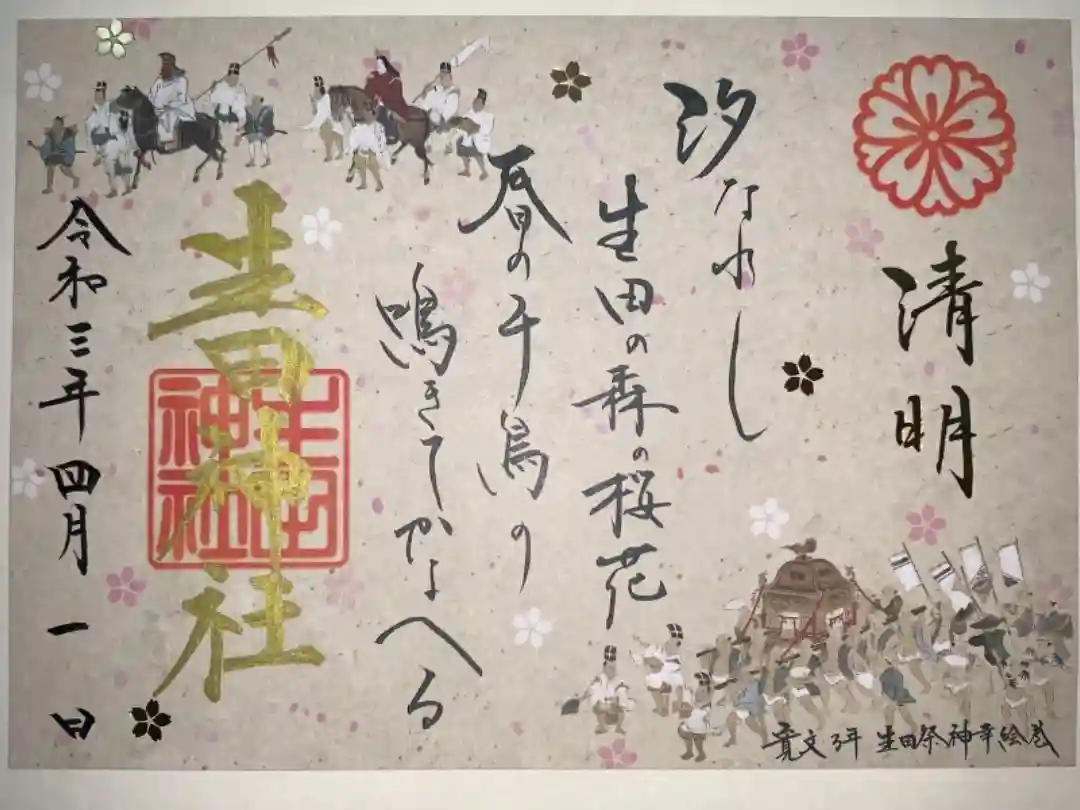 清明
汐なれし
生田の森の桜花
春の千鳥の
鳴きてかよへる
生田神社
生田神社
令和三年四月一日
寛文 生田祭神幸絵巻